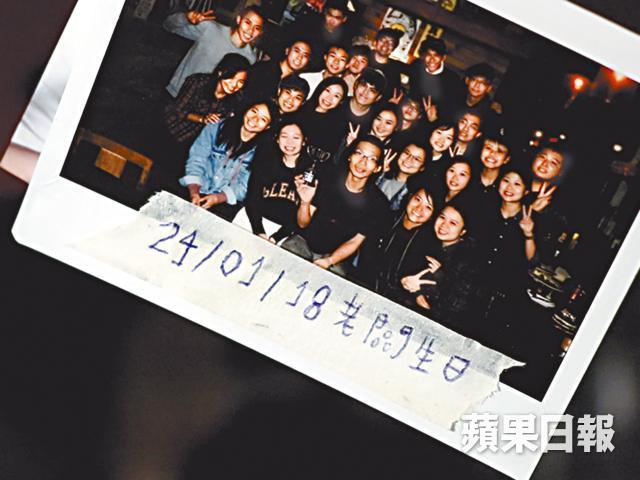 24/01/18 老闆生日
蘋果日報